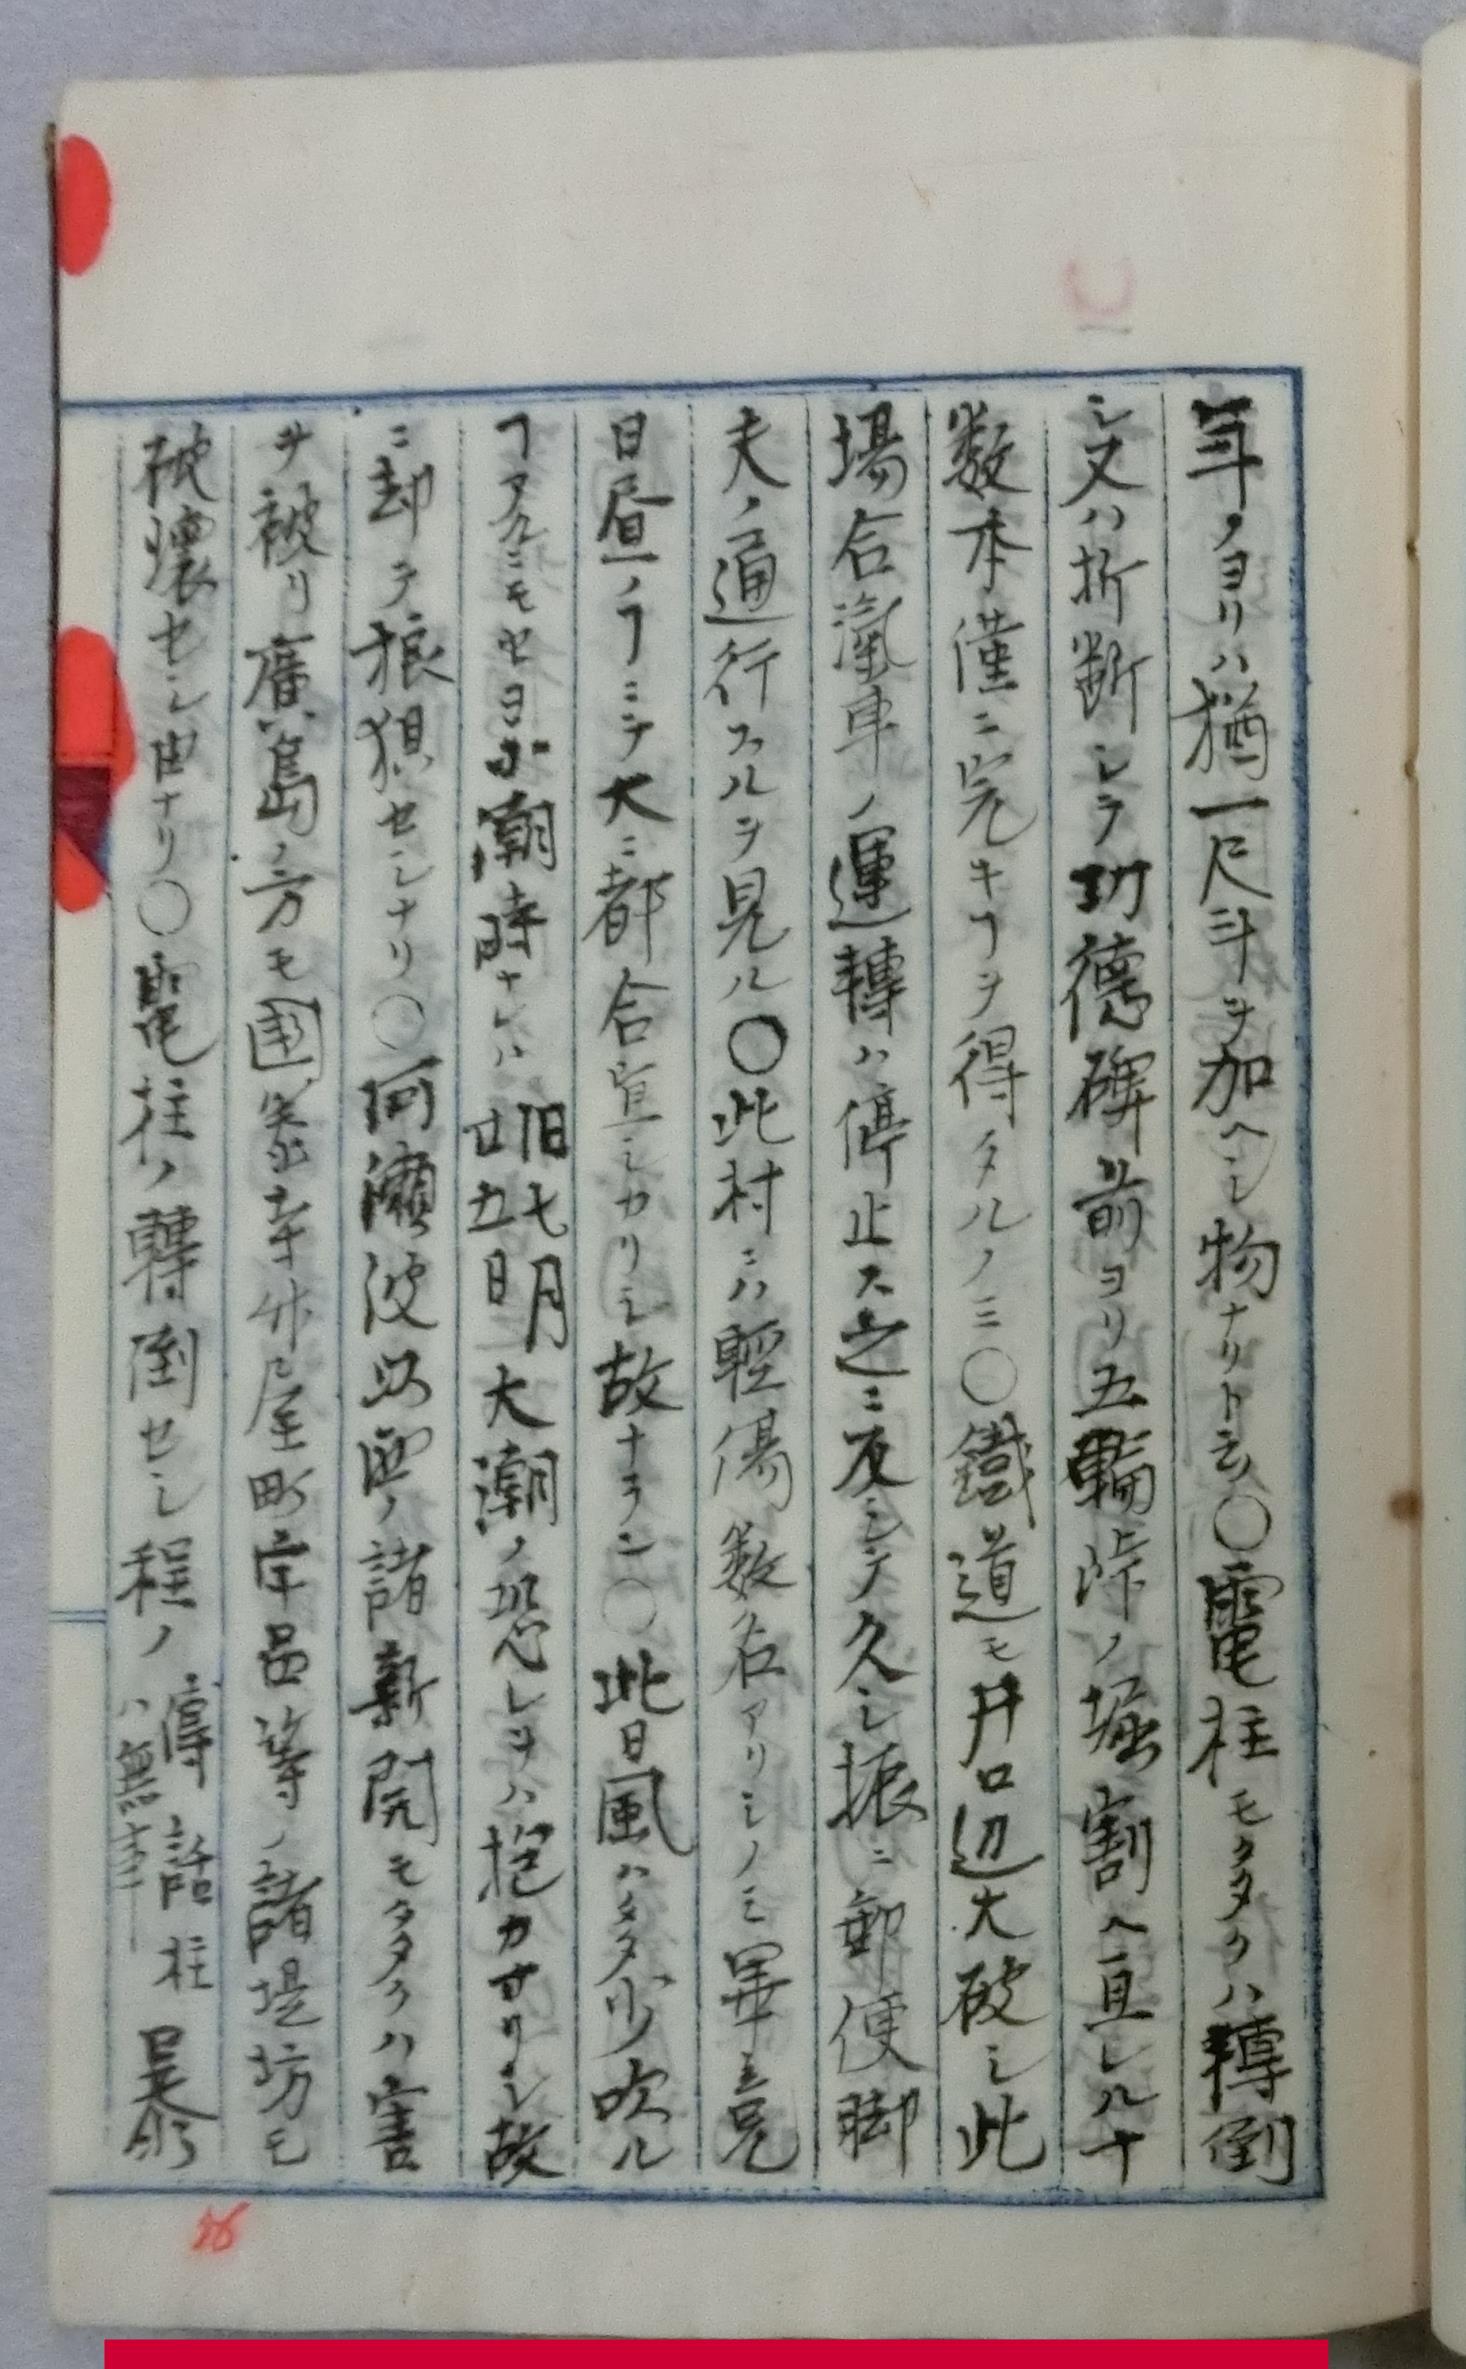 年ノヨリハ猶一尺斗ヲ加ヘシ物ナリト云〇電柱モ多クハ轉倒
シ又ハ折断シテ功德碑前ヨリ五輪峠ノ堀割ヘ亘レル十
数本僅ニ完キヿヲ得タルノミ〇鐵道モ井口辺大破シ此
場合滊車ノ運轉ハ停止ス之ニ反シテ久シ振ニ郵便脚
夫ノ通行スルヲ見ル〇此村ニハ輕傷数名アリシノミ畢竟
日昼ノヿニテ大ニ都合宜シカリシ故ナラン〇此日風ハ多少吹ル
ヿアルニモセヨ小潮時ナレハ旧七月廿五日大潮ノ恐レヲハ抱カサリシ故
ニ却テ狼狽セシナリ〇河瀬波以西ノ諸新開モ多クハ害
ヲ被リ廣島ノ方モ國泰寺竹屋町宇品等ノ諸堤坊モ
破壊セシ由ナリ〇電柱ノ轉倒セシ程ノ傳話柱ハ無事呉